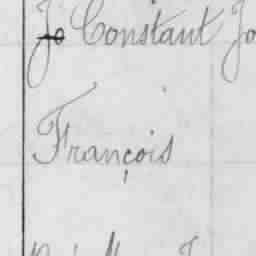 Constant Jo
François